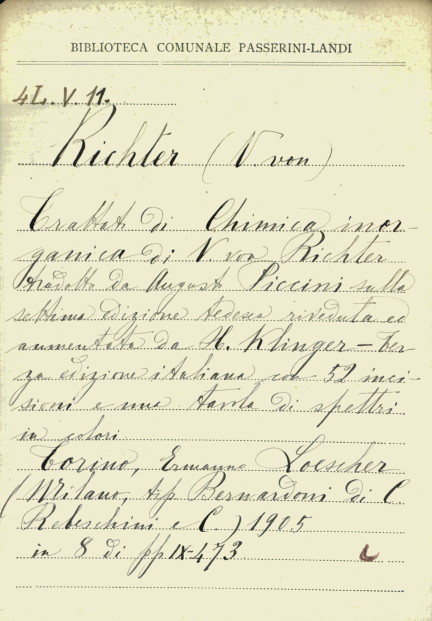 BIBLIOTECA COMUNALE PASSERINI-LANDI
4L. V. 11.
Richter (V. von)
Trattato di Chimica inor-
ganica di V. von Richter
tradotto da Augusto Piccini sulla
settima edizione tedesca riveduta ed
aumentata da H. Klinger - Ter-
za edizione italiana con 52 inci-
sioni e una tavola di spettri
in colori
Torino, Ermanno Loescher
(Milano, tip Bernardoni di C.
Rebeschini e C.) 1905
in 8 di pp IX-473